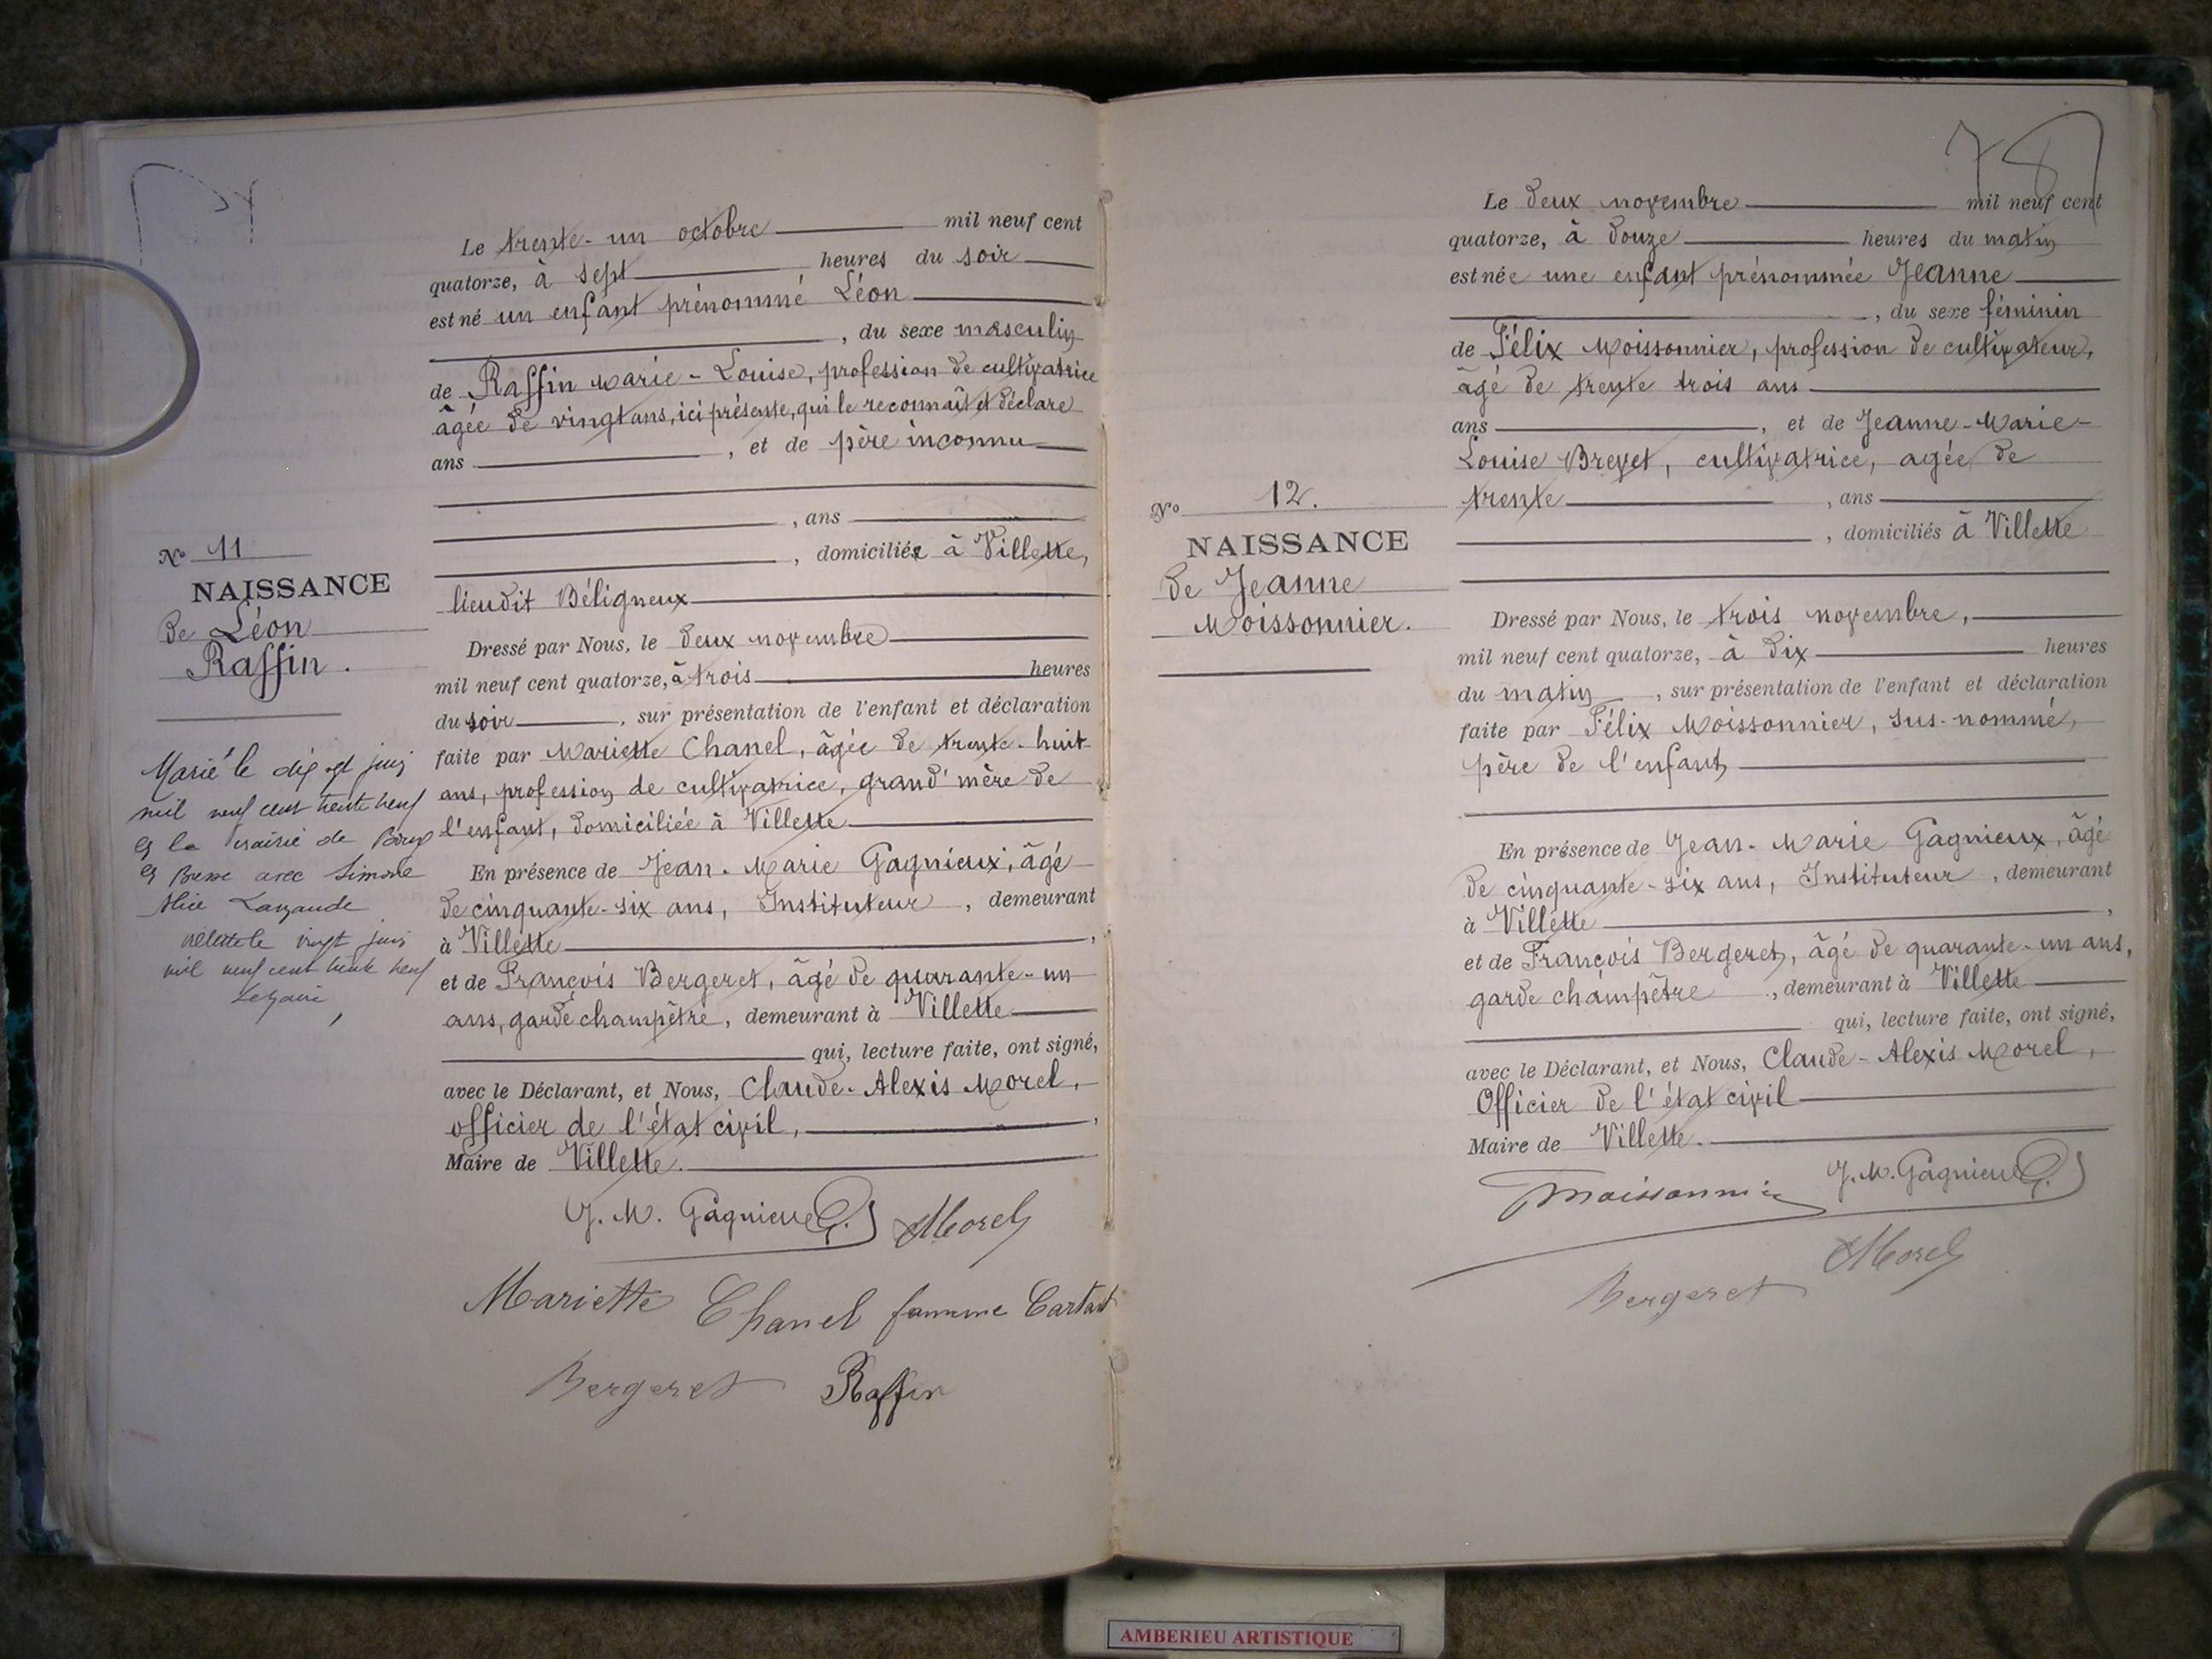 Le trente-un octobre mil neuf cent
quatorze, à sept heures du soir
est né un enfant prénommé Léon
, du sexe masculin
de Raffin Marie-Louise, profession de cultivatrice
âgée de vingt ans, ici présente, qui le reconnaît et déclare
ans , et de père inconnu
, ans
, domiciliée à Villette,
lieudit Béligneux
Nº 11
NAISSANCE
de Léon
Raffin.
Dressé par Nous, le deux novembre
mil neuf cent quatorze, à trois heures
du soir , sur présentation de l'enfant et déclaration
faite par Mariette Chanel, âgée de trente-huit
ans, profession de cultivatrice, grand'mère de
l'enfant, domiciliée à Villette
En présence de Jean-Marie Gagnieux, âgé
de cinquante-six ans, Instituteur , demeurant
à Villette ,
et de François Bergeret, âgé de quarante-un
ans, garde champêtre, demeurant à Villette
qui, lecture faite, ont signé,
avec le Déclarant, et Nous, Claude-Alexis Morel,
officier de l'état civil, ,
Maire de Villette.
Marié le dix sept juin
mil neuf cent trente neuf
en la mairie de Bourg
en Bresse avec Simone
Alice
Villette le vingt juin
mil neuf cent trente neuf
Le Maire
J. M. Gagnieux Morel
Mariette Chanel famme Cartat
Bergeret Raffin
78
Le deux novembre mil neuf cent
quatorze, à douze heures du matin
est née une enfant prénommée Jeanne
, du sexe féminin
de Félix Moissonnier, profession de cultivateur,
âgé de trente trois ans
ans , et de Jeanne-Marie-
Louise Brevet, cultivatrice, agée de
trente , ans
, domiciliés à Villette
Nº 12.
NAISSANCE
de Jeanne
Moissonnier.
Dressé par Nous, le trois novembre,
mil neuf cent quatorze, à dix heures
du matin , sur présentation de l'enfant et déclaration
faite par Félix Moissonnier, sus-nommé,
père de l'enfant
En présence de Jean-Marie Gagnieux, âgé
de cinquante-six ans, Instituteur , demeurant
à Villette ,
et de François Bergeret, âgé de quarante-un ans,
garde champêtre , demeurant à Villette
qui, lecture faite, ont signé,
avec le Déclarant, et Nous, Claude-Alexis Morel,
Officier de l'état civil
Maire de Villette.
Moissonnier J. M. Gagnieux
Morel
Bergeret
AMBERIEU ARTISTIQUE